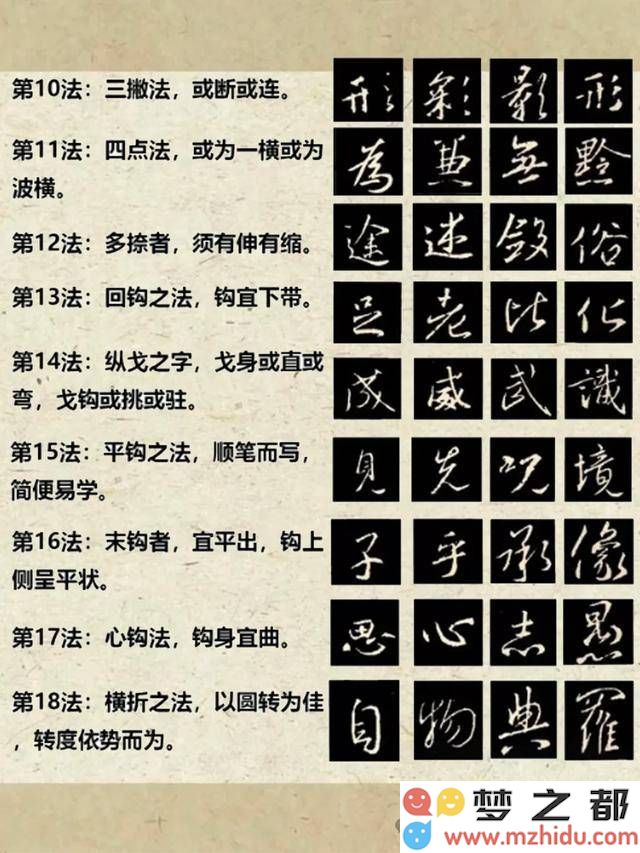 第10法：三撇法，或断或连。
形 彩 影 形
第11法：四点法，或为一横或为
波横。
為 無 黔
第12法：多捺者，须有伸有缩。
途 述 敛 俗
第13法：回钩之法，钩宜下带。
足 老 比 化
第14法：纵戈之字，戈身或直或
弯，戈钩或挑或驻。
成 威 武 識
第15法：平钩之法，顺笔而写，
简便易学。
見 先 况 境
第16法：末钩者，宜平出，钩上
侧呈平状。
子 乎 承 像
第17法：心钩法，钩身宜曲。
思 心 志
第18法：横折之法，以圆转为佳
，转度依势而为。
自 物 典 羅
梦之都
www.mzhidu.com